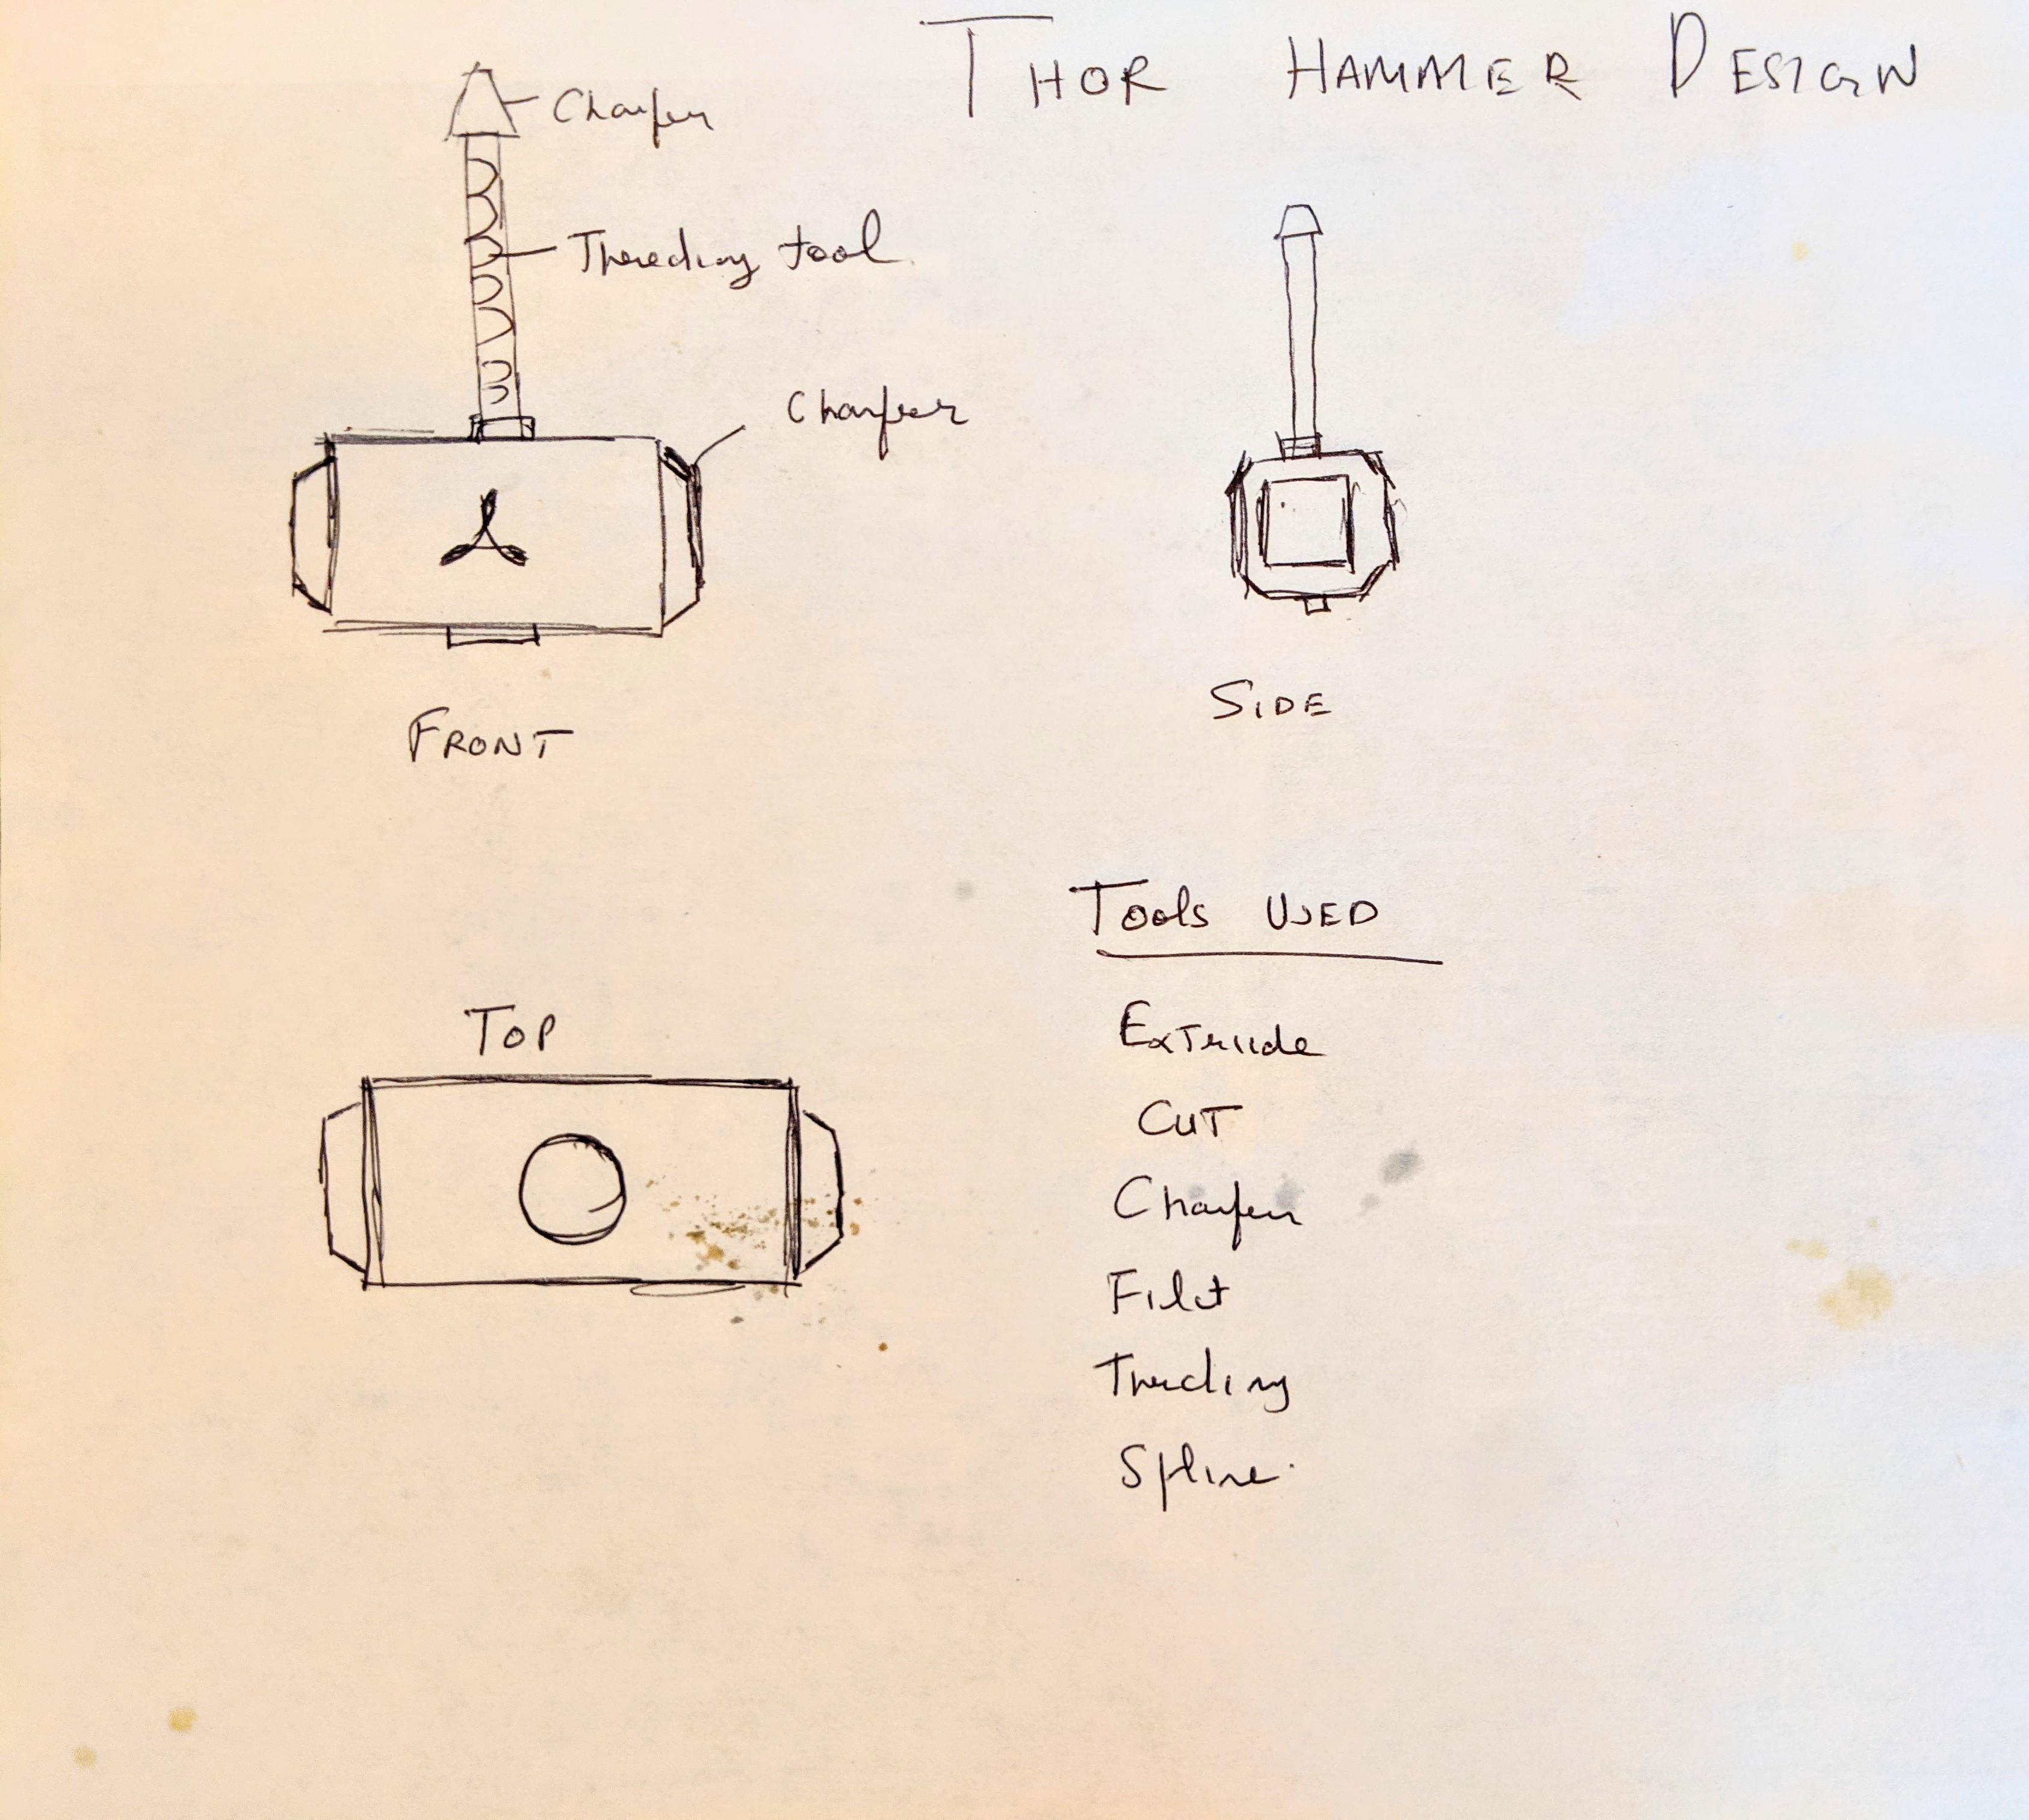 THOR HAMMER DESIGN
Chamfer
Threading tool
Chamfer
FRONT
SIDE
TOP
Tools USED
Extrude
CUT
Chamfer
Filet
Threding
Spline